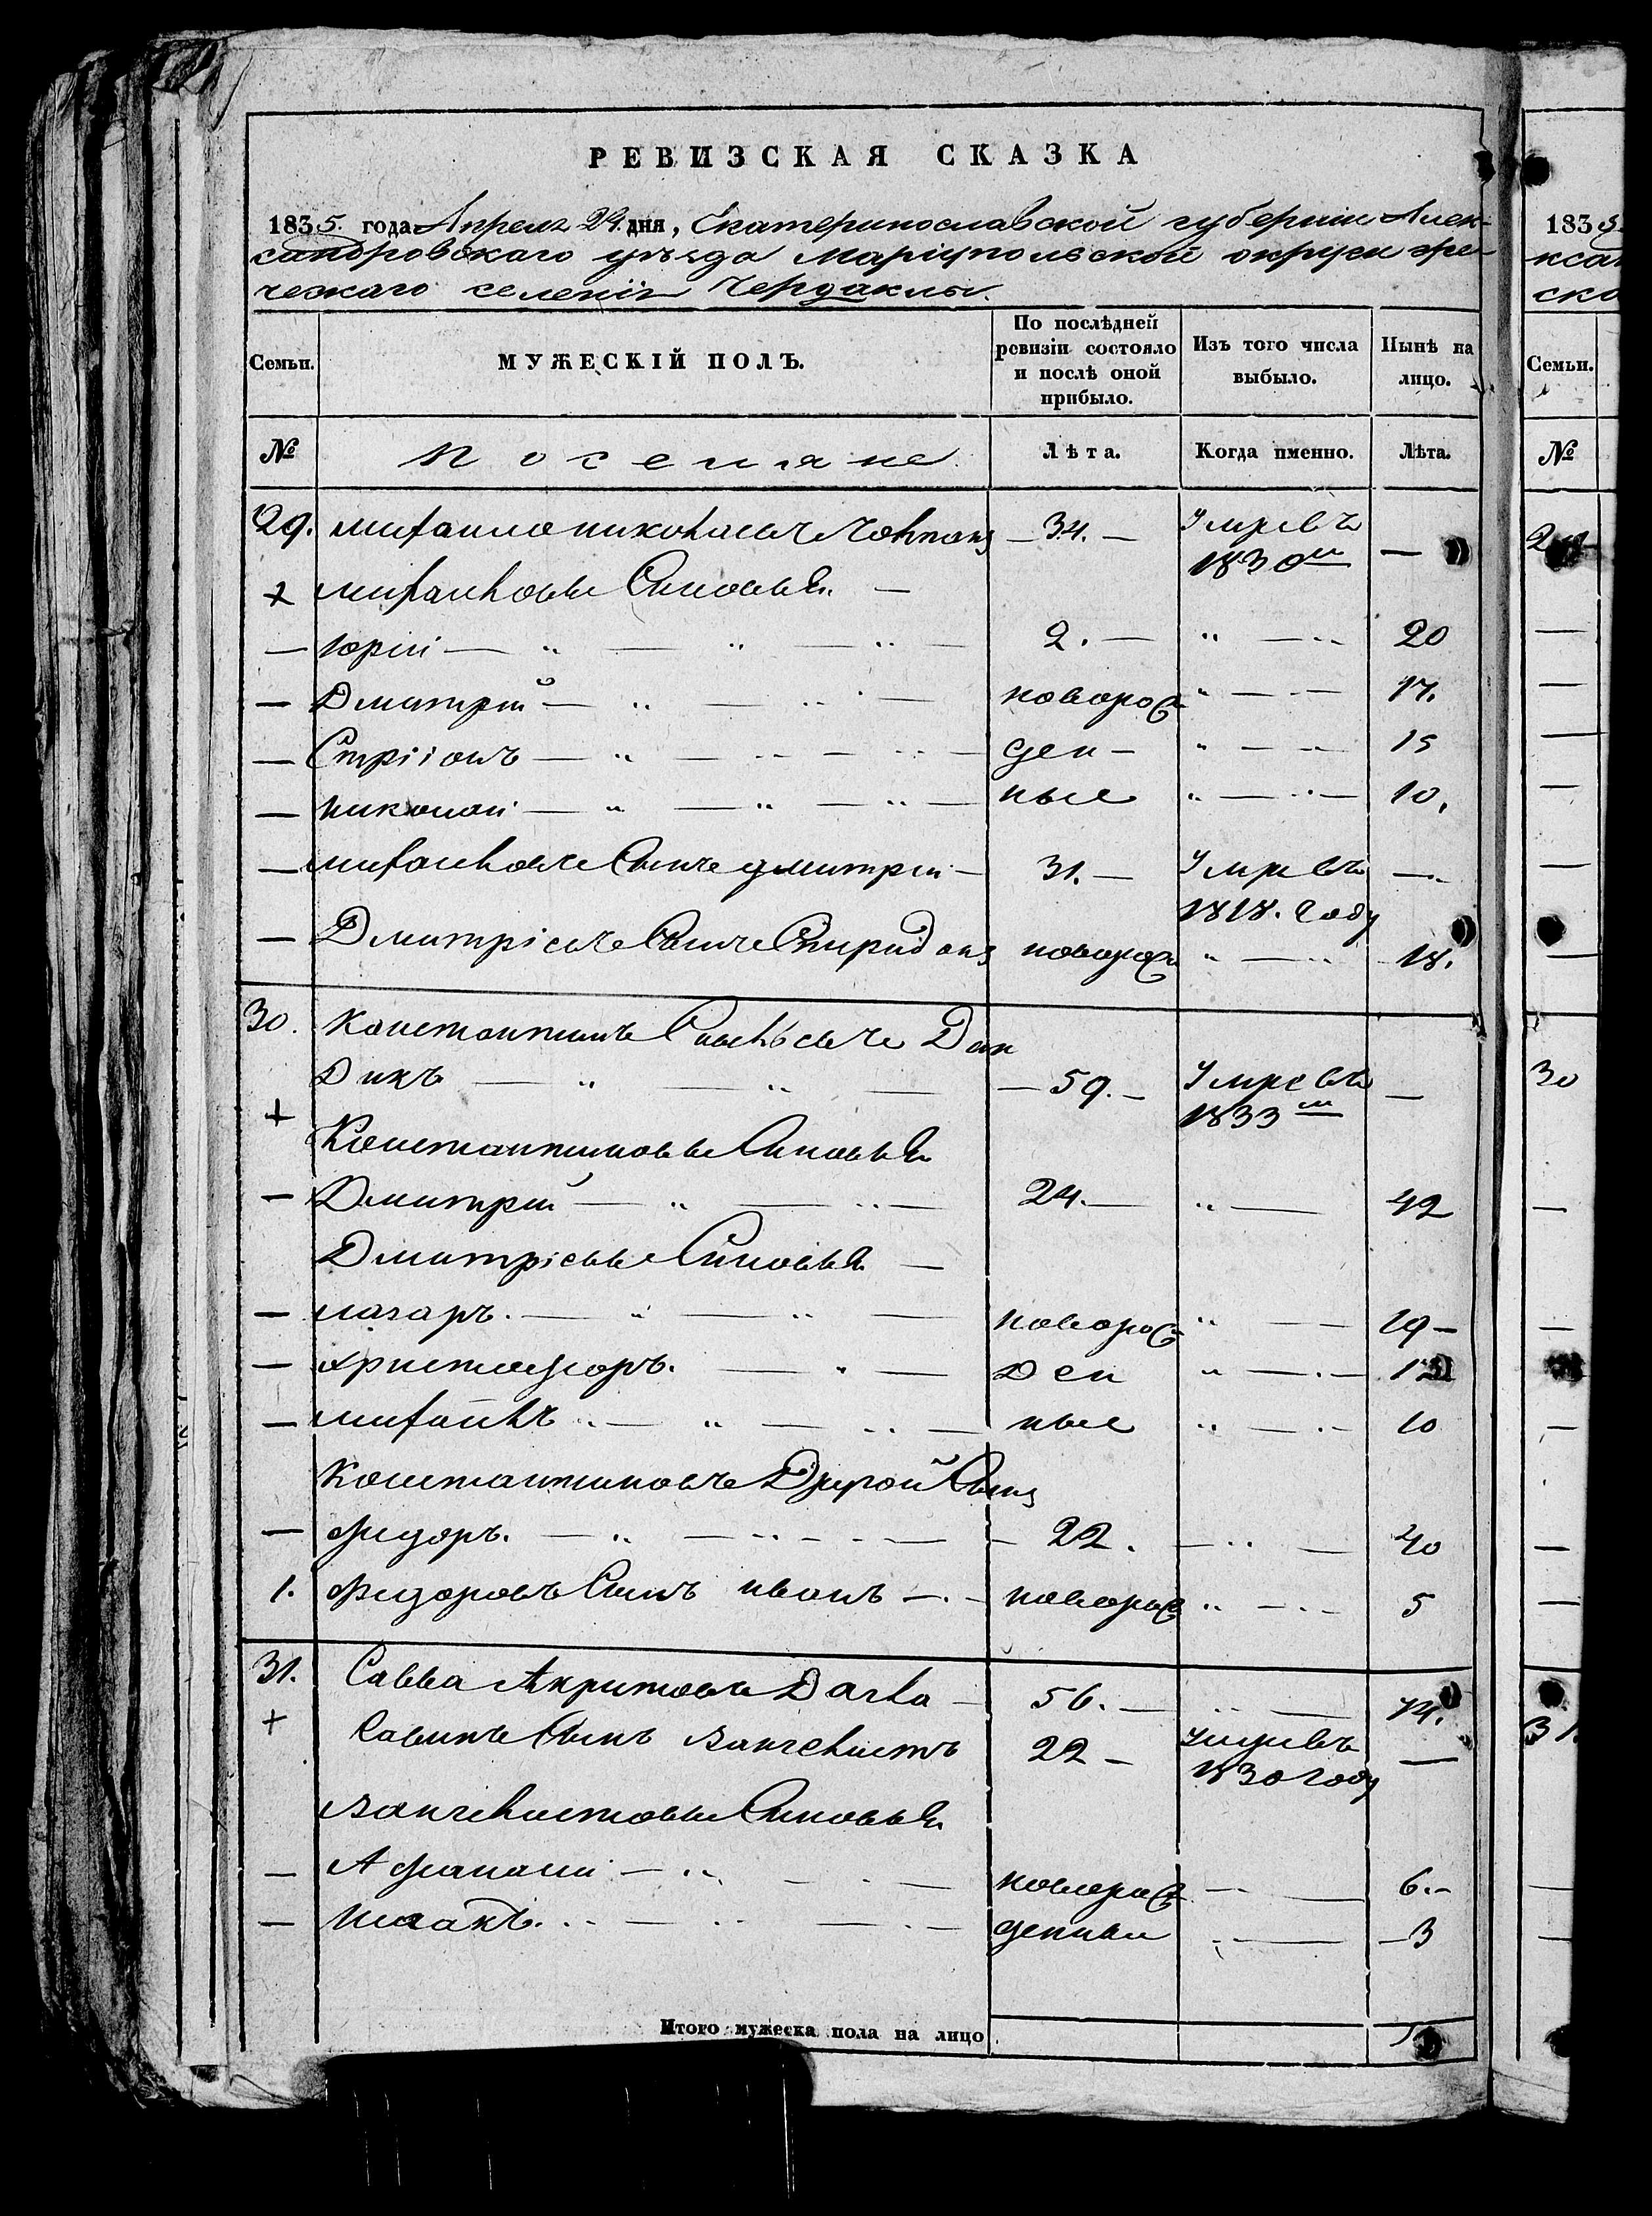 РЕВИЗСКАЯ СКАЗКА
1835. года Апреля 24. дня, Екатеринославской губернiи Алек-
сандровскаго уѣзда Марiупольской округи гре-
ческаго селенiя Чердаклы.
Семьи.
МУЖЕСКІЙ ПОЛЪ.
По послѣдней ревизіи состояло и послѣ оной прибыло.
Изъ того числа выбыло.
Нынѣ на лицо.
№ Поселяне Лѣта. Когда именно. Лѣта.
29. Михаило Николаевъ — 34. — Умревъ 1830м —
+ Михайловы Сыновья —
— Юрiй — 2. — 20
— Дмитрiй — новорож 17.
— — ден — 15
— Николай — ные 10.
— Сынъ Дмитрiй — 31. — Умревъ 1818. Году —
— Дмитрiевъ Сынъ Спиридонъ новорож 18.
30. Константинъ Дан
Дикъ — 59. — Умревъ 1833м —
+ Константиновы Сыновья
— Дмитрiй — 24. — 42
Дмитрiевы Сыновья —
— Лазаръ. — новорож 19 —
— Христофоръ. — Ден
— Михайлъ — ные 10
Константиновъ Другой Сынъ
— Фидоръ. — 22. — 40
1. Фидоровъ Сынъ Иванъ — новорож 5
31. Савва Акритовъ — 56. — 74.
+ Савинъ Сынъ 22 — Умревъ 1830 году —
Сыновья
— Афанасiй — новорож 6. —
— Исаакъ. — денныи — 3
Итого мужеска пола на лицо
183
ксан
ско
Семьи.
№
30
31.